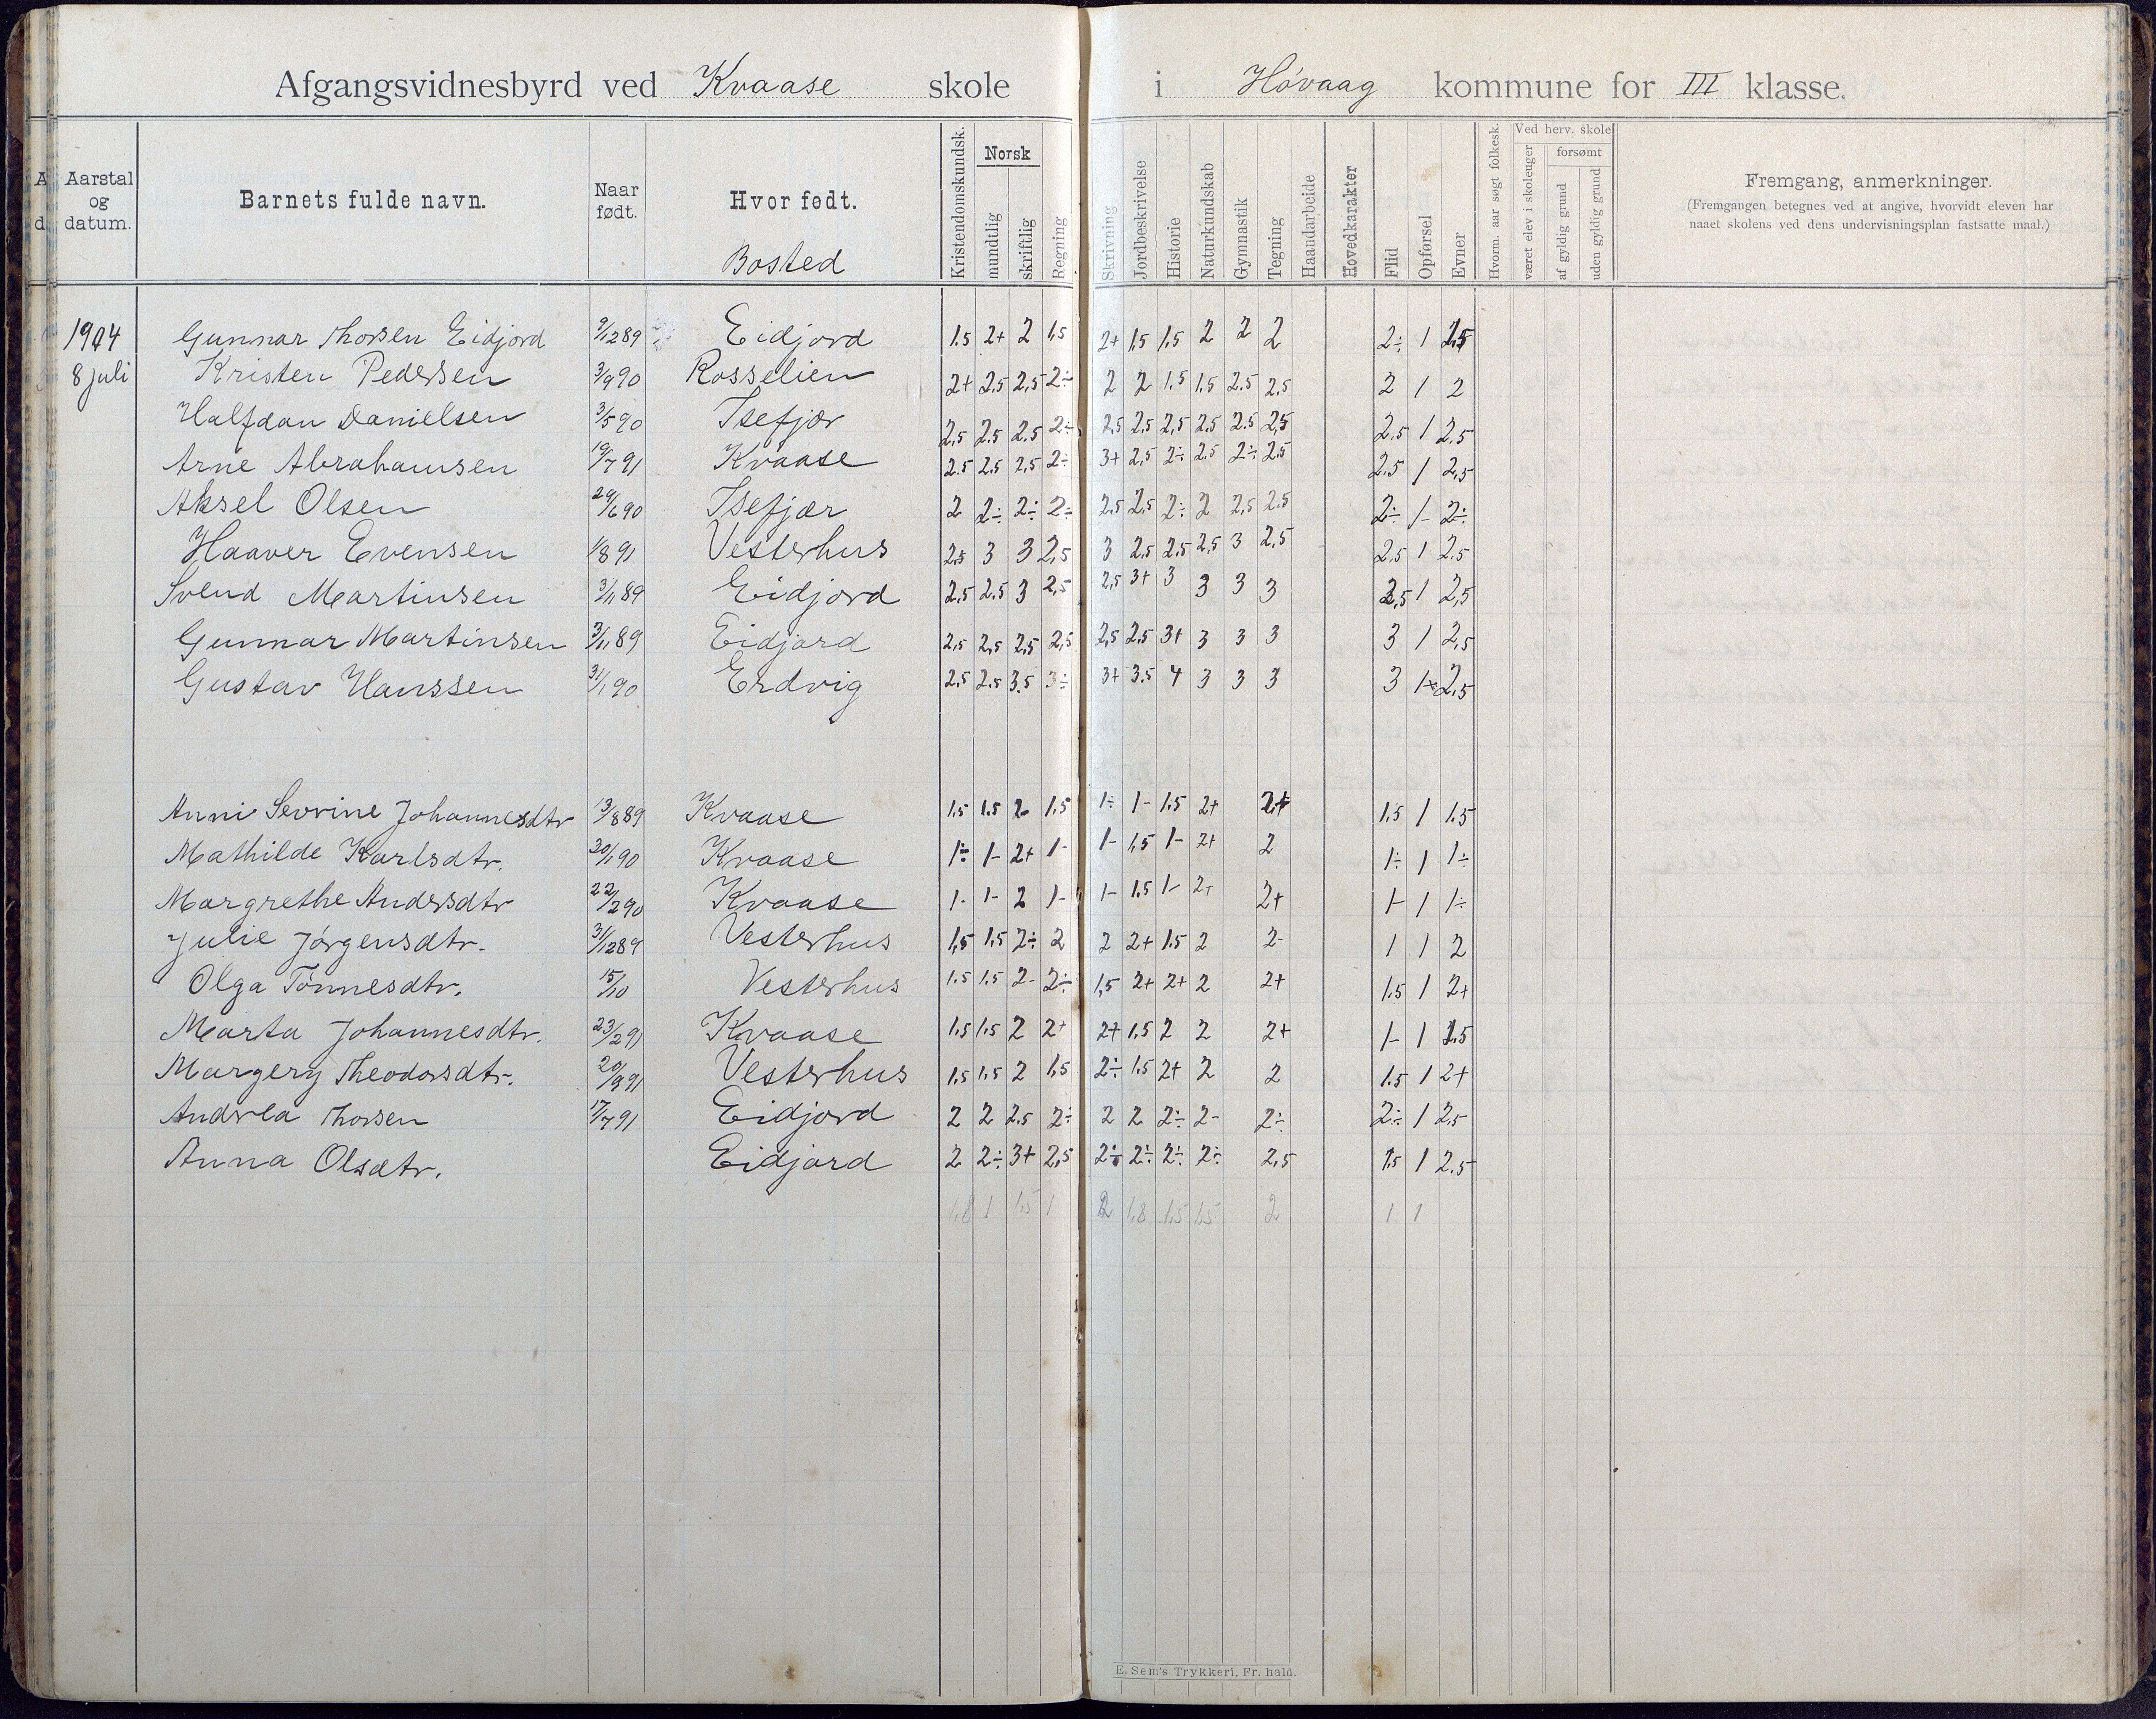 Afgangsvidnesbyrd ved Kvaase skole i Høvaag kommune for III klasse.
Aarstal og datum. Barnets fulde navn. Naar født. Hvor født. Bosted Kristendomskundsk. Norsk mundtlig skriftlig Regning Skrivning Jordbeskrivelse Historie Naturkundskab Gymnastik Tegning Haandarbeide Hovedkarakter Flid Opførsel Evner Hvorm. aar søgt folkesk. Ved herv. skole været elev i skoleuger forsømt af gyldig grund uden gyldig grund Fremgang, anmerkninger.
(Fremgangen betegnes ved at angive, hvorvidt eleven har
naaet skolens ved dens undervisningsplan fastsatte maal.)
1904 Gunnar Thorsen Eidjord 9/12 89 Eidjord 1.5 2+ 2 1,5 2+ 1.5 1.5 2 2 2 2÷ 1 2,5
8 juli Kristen Pedersen 3/9 90 Rosselien 2+ 2.5 2,5 2÷ 2 2 1.5 1.5 2.5 2,5 2 1 2
Halfdan Danielsen 3/5 90 Isefjær 2,5 2.5 2.5 2÷ 2,5 2.5 2,5 2.5 2.5 2,5 2.5 1 2.5
Arne Abrahamsen 19/7 91 Kvaase 2.5 2,5 2,5 2÷ 3+ 2,5 2÷ 2.5 2÷ 2.5 2.5 1 2,5
Aksel Olsen 29/6 90 Isefjær 2 2÷ 2÷ 2÷ 2,5 2,5 2÷ 2 2,5 2.5 2÷ 1- 2÷
Haaver Evensen 1/8 91 Vesterhus 2,5 3 3 2,5 3 2,5 2.5 2,5 3 2,5 2,5 1 2.5
Svend Martinsen 3/11 89 Eidjord 2.5 2.5 3 2,5 2,5 3+ 3 3 3 3 2,5 1 2,5
Gunnar Martinsen 3/11 89 Eidjord 2,5 2,5 2,5 2,5 2,5 2.5 3+ 3 3 3 3 1 2,5
Gustav Hanssen 31/1 90 Erdvig 2.5 2.5 3.5 3÷ 3+ 3.5 4 3 3 3 3 1× 2,5
Anni Sevrine Johannesdtr 13/8 89 Kvaase 1.5 1.5 2 1,5 1÷ 1- 1.5 2+ 2+ 1.5 1 1.5
Mathilde Karlsdtr. 30/1 90 Kvaase 1÷ 1- 2+ 1- 1- 1,5 1- 2+ 2 1÷ 1 1÷
Margrethe Andersdtr 22/2 90 Kvaase 1- 1- 2 1- 1- 1.5 1- 2+ 2+ 1- 1 1÷
Julie Jørgensdtr. 31/12 89 Vesterhus 1,5 1,5 2÷ 2 2 2+ 1.5 2 2- 1 1 2
Olga Tønnesdtr. 15/10 Vesterhus 1.5 1.5 2- 2÷ 1,5 2+ 2+ 2 2+ 1.5 1 2+
Marta Johannesdtr. 23/2 91 Kvaase 1.5 1.5 2 2+ 2+ 1,5 2 2 2+ 1- 1 1.5
Margery Theodorsdtr. 20/9 91 Vesterhus 1.5 1.5 2 1,5 2÷ 1.5 2+ 2 2 1.5 1 2+
Andrea Thorsen 17/7 91 Eidjord 2 2 2.5 2÷ 2 2 2÷ 2- 2÷ 2÷ 1 2.5
Anna Olsdtr. Eidjord 2 2÷ 3+ 2,5 2÷ 2÷ 2÷ 2÷ 2,5 1.5 1 2.5
1,8 1 1,5 1 2 1,8 1,5 1,5 2 1 1
E. Sem's Trykkeri, Fr. hald.